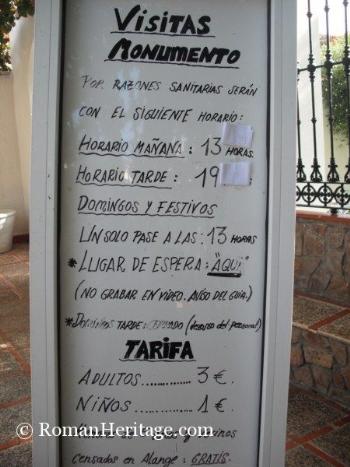 VISITAS
MONUMENTO
POR RAZONES SANITARIAS SERÁN
CON EL SIGUIENTE HORARIO:
HORARIO MAÑANA: 13 HORAS.
HORARIO TARDE: 19
DOMINGOS Y FESTIVOS
UN SOLO PASE A LAS: 13 HORAS
* LUGAR DE ESPERA: "AQUÍ"
(NO GRABAR EN VIDEO. AVISO DEL GUÍA.)
* DOMINGOS TARDE: CERRADO (descanso del personal)
TARIFA
ADULTOS.......... 3 €.
NIÑOS.......... 1 €.
© RomanHeritage.com
censados en Alange: GRATIS.